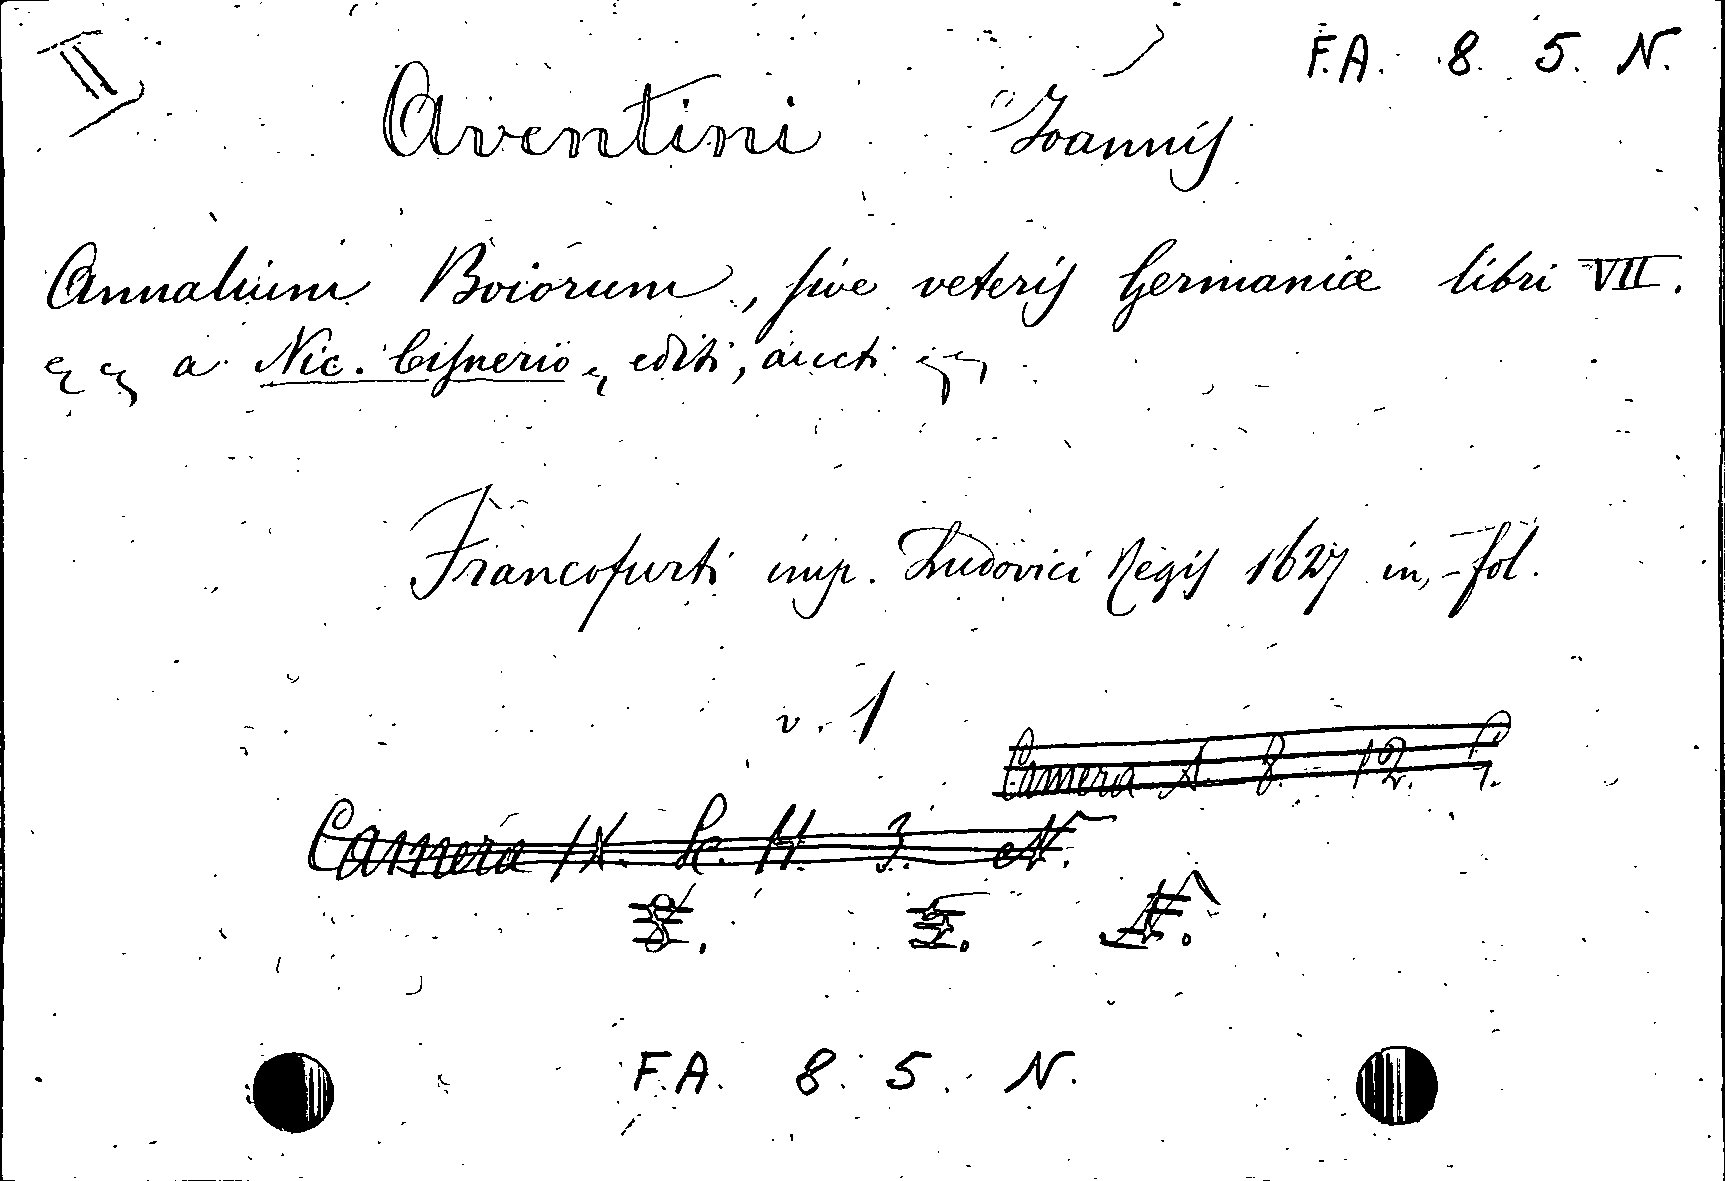 II
F.A. 8. 5. N.
Aventini Joannis
Annalium Boiorum, sive veteris Germaniæ libri VII.
a Nic. Cisnerio editi, aucti
Francofurti imp. Ludovici Regis 1627 in-fol.
v. 1
Camera A. 8. 12.
Camera IX. Sc. H. 3. N.
8. 5. N.
F.A. 8. 5. N.